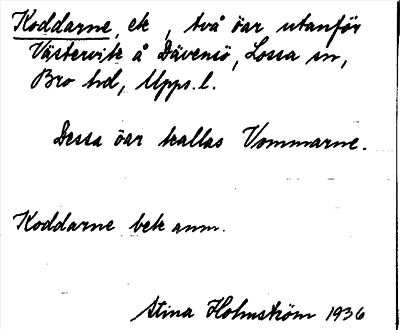 Koddarne, ek, två öar utanför
Västervik å Dävensö, Lossa sn,
Bro hd, Upps. l.
Dessa öar kallas Vommarne.
Koddarne bek anm.
Stina Holmström 1936